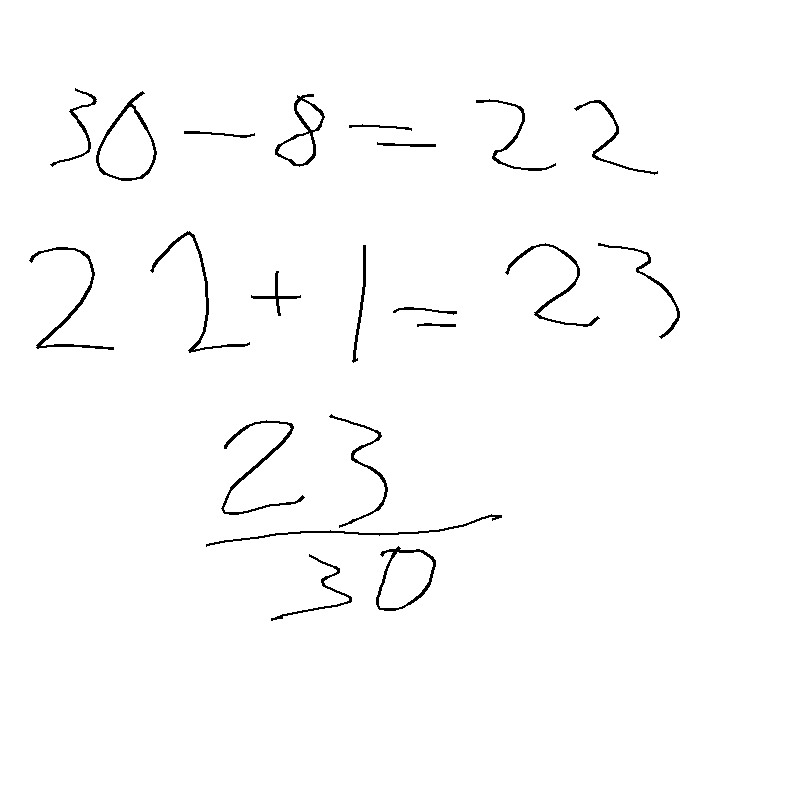 30 - 8 = 22
22 + 1 = 23
23
30